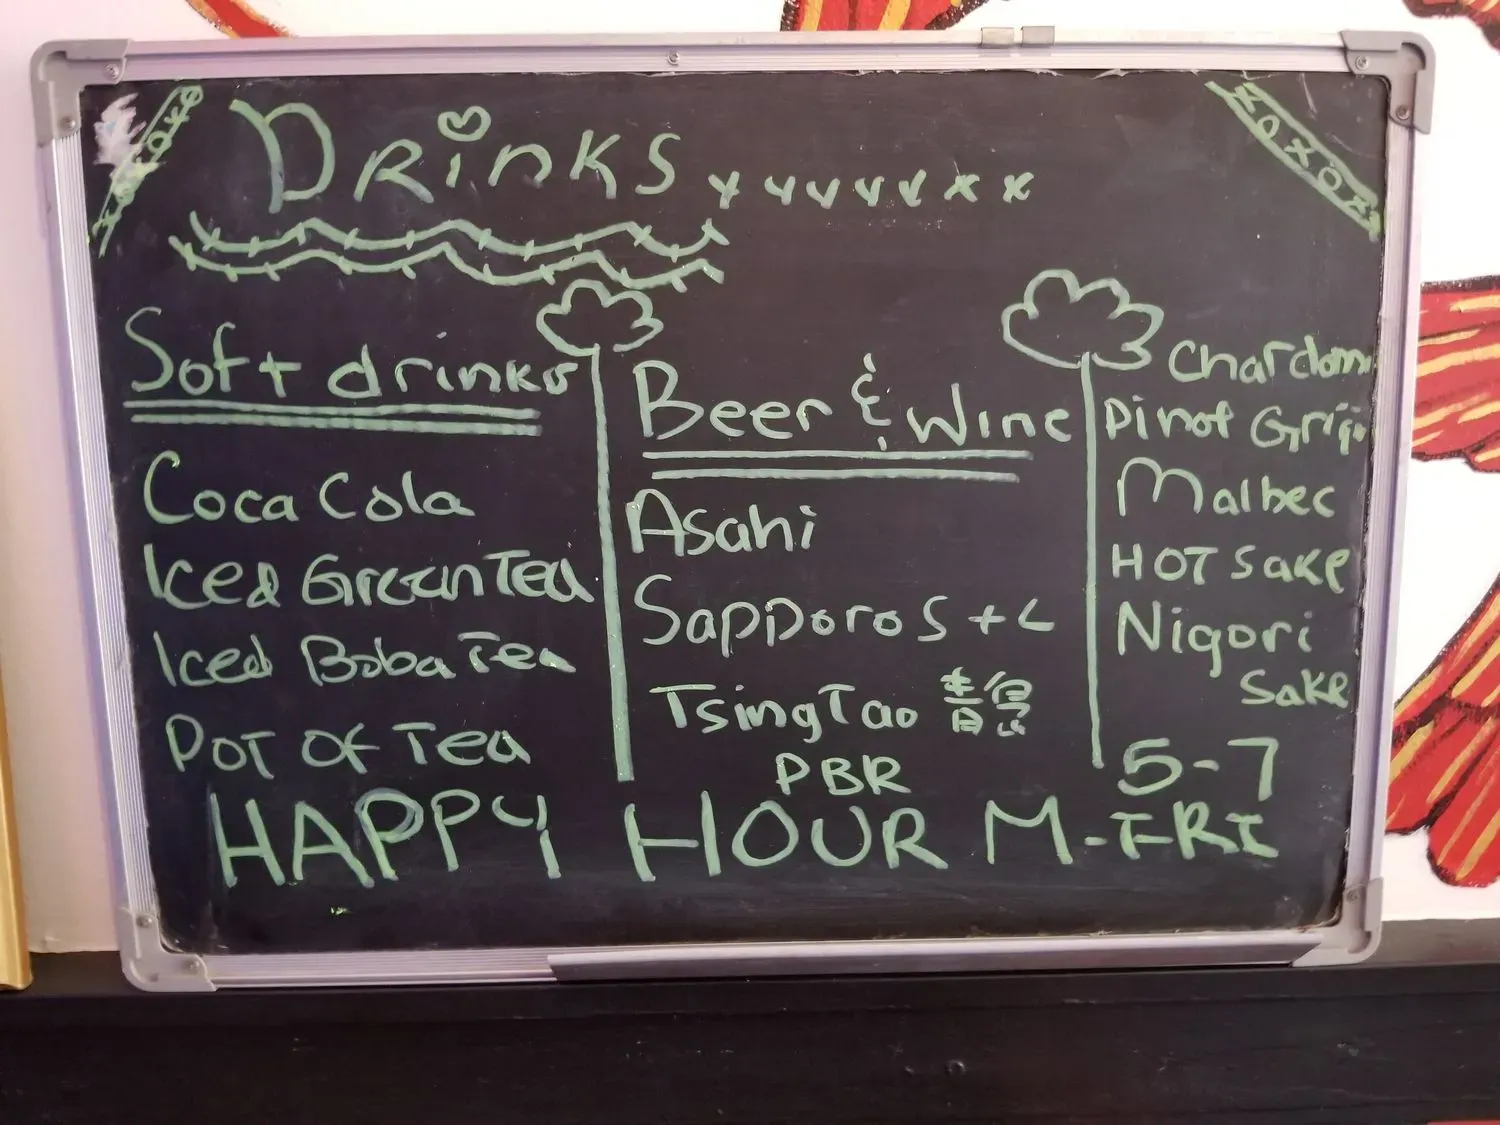 Drinks
Soft drinks
Coca Cola
Iced Green Tea
Iced Boba Tea
Pot of Tea
Beer & Wine
Asahi
Sapporo S + L
TsingTao
PBR
Chardonn
Pinot Grigio
Malbec
HOT Sake
Nigori
Sake
5-7
HAPPY HOUR M-FRI